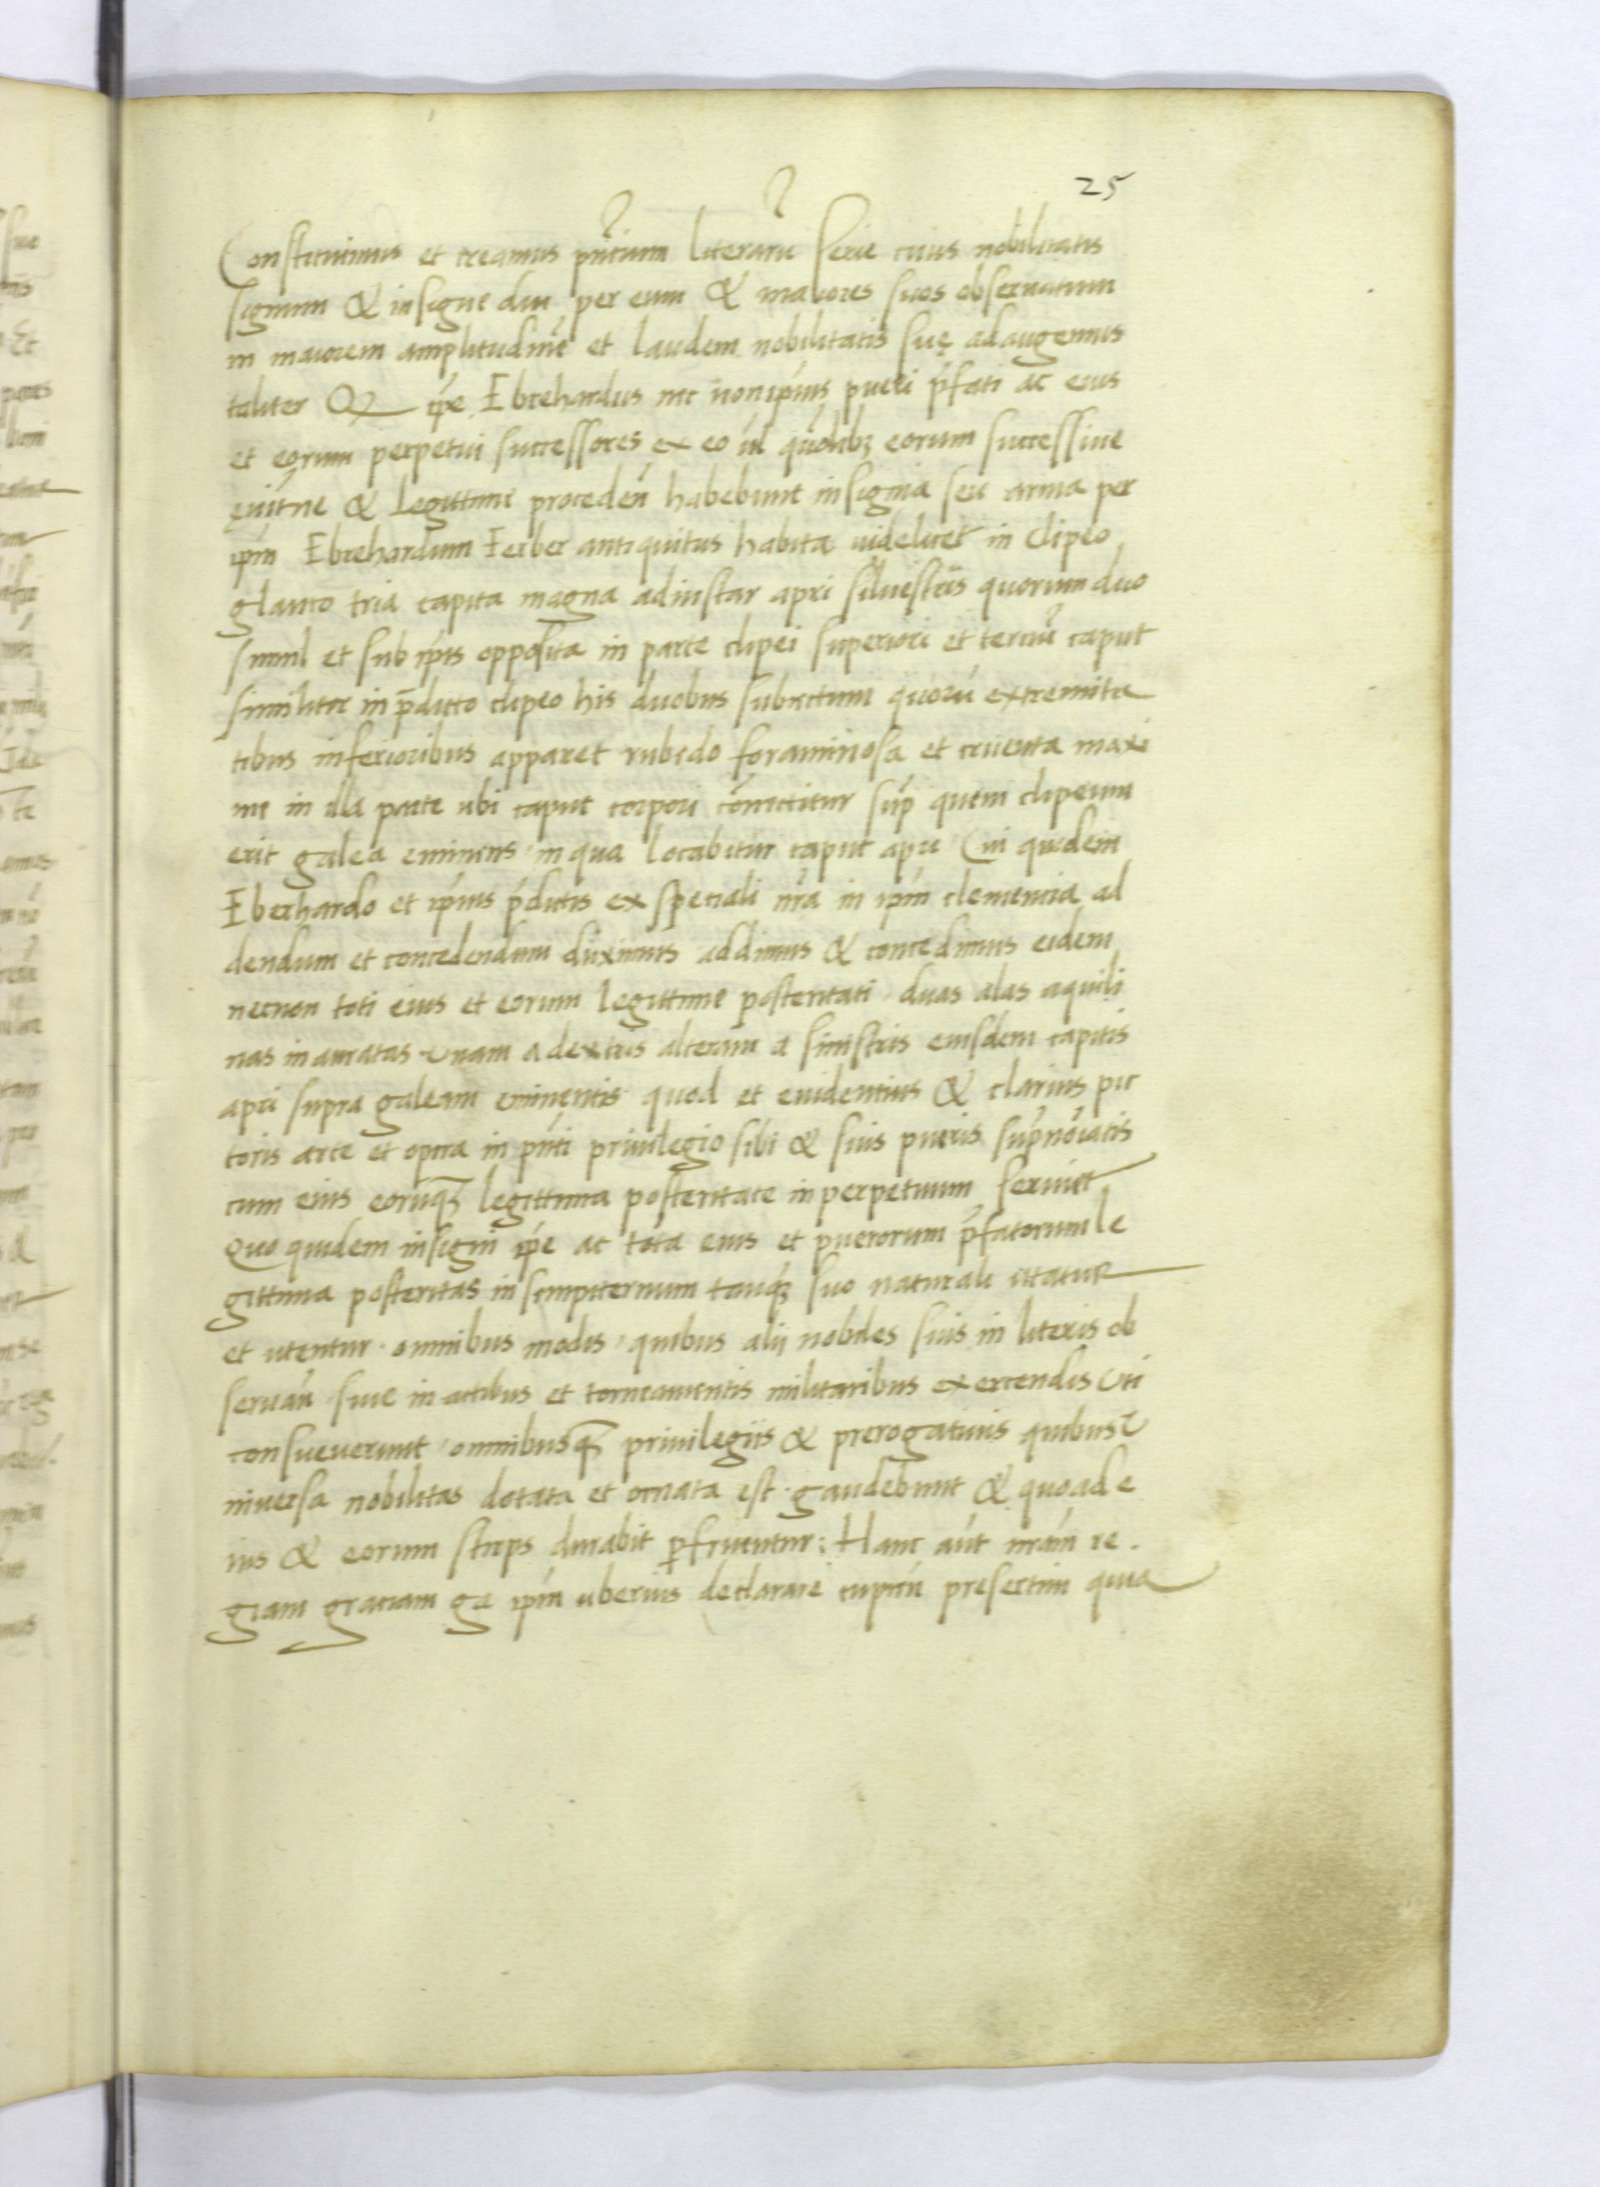 25
Constituimus et creamus pñtium literarũ serie cuius nobilitatis
signum & insigne diu per eum & maiores suos obseruatum
in maiorem amplitudinẽ et laudem nobilitatis suę adaugemus
taliter Q ip̃e Eberhardus nec non ip̃ius pueri p̃fati ac eius
et eorum perpetui successores ex eo ul quolibꝫ eorum successiue
& legittime proceden̄ habebunt insignia seu arma per
ip̃m Eberhardum Ferber antiquitus habita uidelicet in clipeo
glauco tria capita magna ad instar apri siluestris quorum duo
simul et sub ip̃is opposita in parte clipei superiori et terciũ caput
similiter in p̃dicto clipeo his duobus subiectum quorũ extremita
tibus inferioribus apparet rubedo foraminosa et cruenta maxi
me in illa parte ubi caput corpori cõnectitur sup̃ quem clipeum
erit galea eminens in qua locabitur caput apri Cui quidem
Eberhardo et ip̃ius p̃dictis ex speciali nr̃a in ip̃m clementia ad
dendum et concedendum duximus addimus & concedimus eidem
necnon toti eius et eorum legittime posteritati duas alas aquili
nas inauratas unam a dextris alteram a sinistris eiusdem capitis
apri supra galeam eminentis quod et euidentius & clarius pic
toris arte et opera in pñti priuilegio sibi & suis pueris sup̃noĩatis
cum eius eorũqꝫ legittima posteritate in perpetuum seruiet
Quo quidem insigni ip̃e ac tota eius et puerorum p̃fatorum le
gittima posteritas in sempiternum tanqꝫ suo naturali utatur
et utentur omnibus modis quibus alij nobiles suis in literis ob
seruan̄ siue in actibus et torneamentis militaribus exercendis uti
consueuerunt omnibusqꝫ priuilegiis & prerogatiuis quibus u
niuersa nobilitas dotata et ornata est gaudebunt & quoad e
ius & eorum stirps durabit p̱fruentur: Hanc aũt nr̃am re
giam gratiam ga ip̃m uberius declarare cupien̄ presertim quia